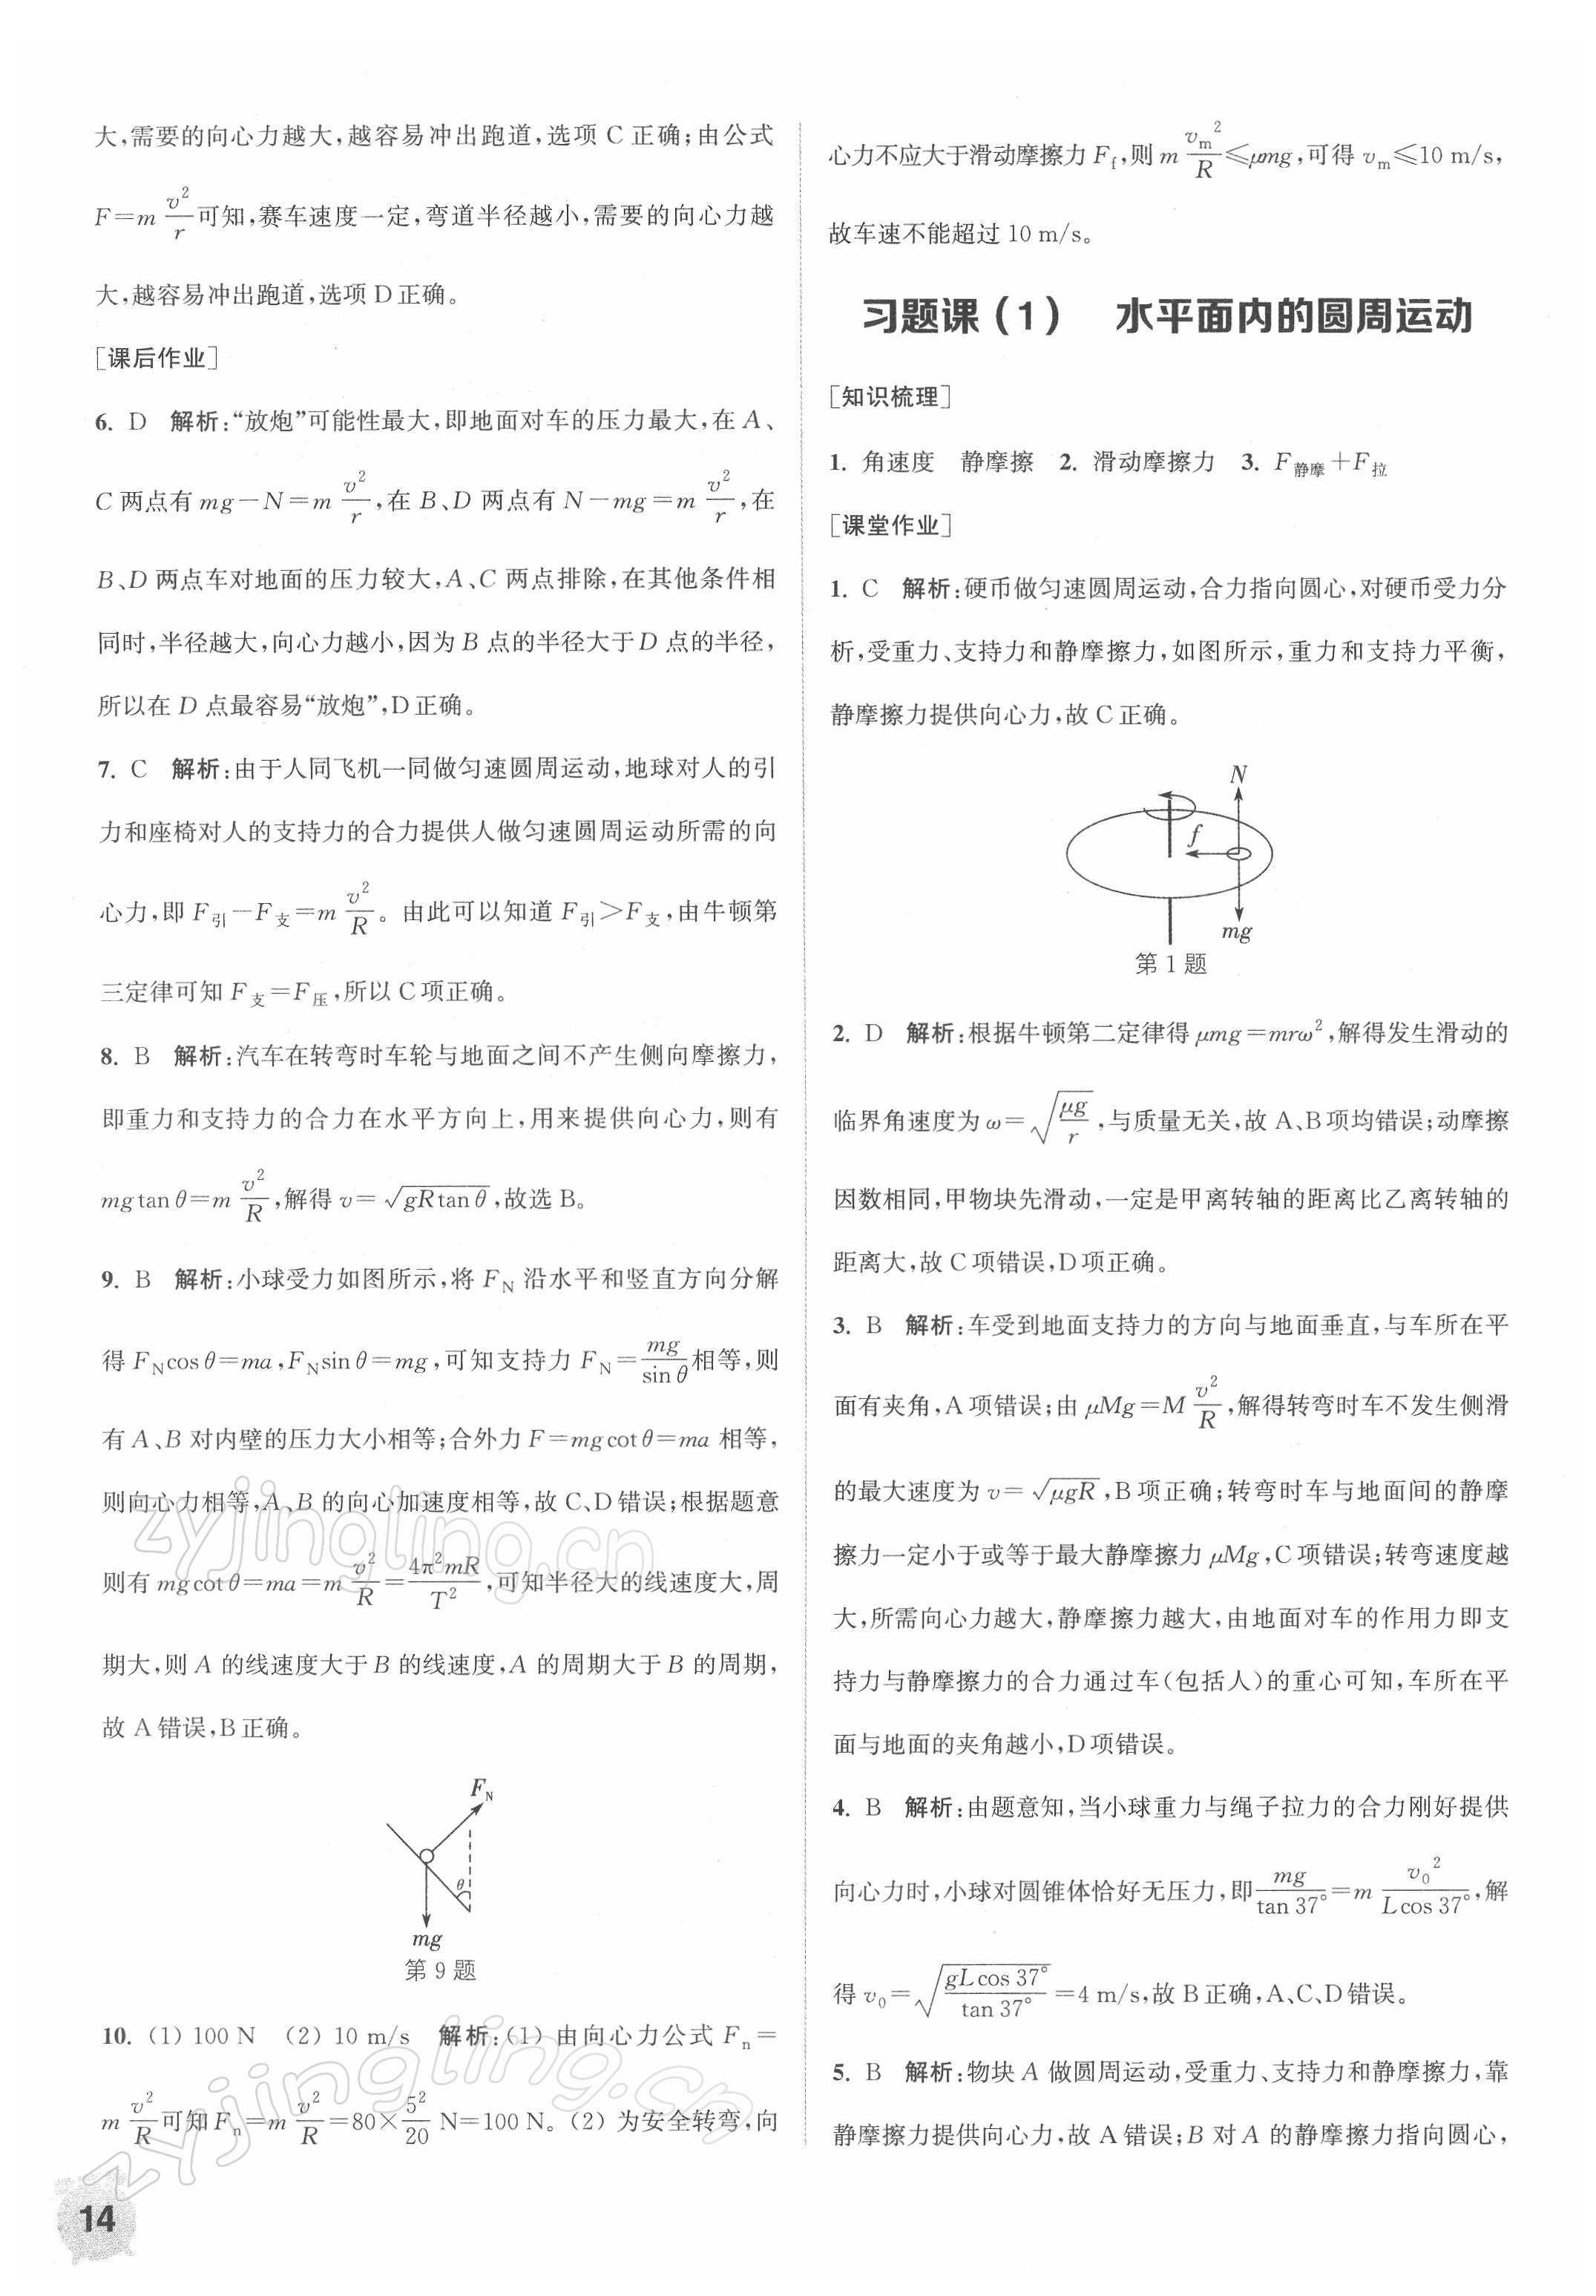 大,需要的向心力越大,越容易冲出跑道,选项 C 正确;由公式
F=m v²/r 可知,赛车速度一定,弯道半径越小,需要的向心力越
大,越容易冲出跑道,选项 D 正确。
[课后作业]
6. D 解析:“放炮”可能性最大,即地面对车的压力最大,在 A、
C 两点有 mg−N=m v²/r,在 B、D 两点有 N−mg=m v²/r,在
B、D 两点车对地面的压力较大,A、C 两点排除,在其他条件相
同时,半径越大,向心力越小,因为 B 点的半径大于 D 点的半径,
所以在 D 点最容易“放炮”,D 正确。
7. C 解析:由于人同飞机一同做匀速圆周运动,地球对人的引
力和座椅对人的支持力的合力提供人做匀速圆周运动所需的向
心力,即 F引−F支=m v²/R。由此可以知道 F引>F支,由牛顿第
三定律可知 F支=F压,所以 C 项正确。
8. B 解析:汽车在转弯时车轮与地面之间不产生侧向摩擦力,
即重力和支持力的合力在水平方向上,用来提供向心力,则有
mgtan θ=m v²/R,解得 v=√(gRtan θ),故选 B。
9. B 解析:小球受力如图所示,将 F_N 沿水平和竖直方向分解
得 F_N cos θ=ma,F_N sin θ=mg,可知支持力 F_N=mg/sin θ 相等,则
有 A、B 对内壁的压力大小相等;合外力 F=mgcot θ=ma 相等,
则向心力相等,A、B 的向心加速度相等,故 C、D 错误;根据题意
则有 mgcot θ=ma=m v²/R=4π²mR/T²,可知半径大的线速度大,周
期大,则 A 的线速度大于 B 的线速度,A 的周期大于 B 的周期,
故 A 错误,B 正确。
F_N
θ
mg
第 9 题
10. (1) 100 N (2) 10 m/s 解析:(1) 由向心力公式 F_n=
m v²/R 可知 F_n=m v²/R=80×5²/20 N=100 N。(2) 为安全转弯,向
14
心力不应大于滑动摩擦力 F_f,则 m v_m²/R≤μmg,可得 v_m≤10 m/s,
故车速不能超过 10 m/s。
习题课(1) 水平面内的圆周运动
[知识梳理]
1. 角速度 静摩擦 2. 滑动摩擦力 3. F静摩+F拉
[课堂作业]
1. C 解析:硬币做匀速圆周运动,合力指向圆心,对硬币受力分
析,受重力、支持力和静摩擦力,如图所示,重力和支持力平衡,
静摩擦力提供向心力,故 C 正确。
N
f
mg
第 1 题
2. D 解析:根据牛顿第二定律得 μmg=mrω²,解得发生滑动的
临界角速度为 ω=√(μg/r),与质量无关,故 A、B 项均错误;动摩擦
因数相同,甲物块先滑动,一定是甲离转轴的距离比乙离转轴的
距离大,故 C 项错误,D 项正确。
3. B 解析:车受到地面支持力的方向与地面垂直,与车所在平
面有夹角,A 项错误;由 μMg=M v²/R,解得转弯时车不发生侧滑
的最大速度为 v=√(μgR),B 项正确;转弯时车与地面间的静摩
擦力一定小于或等于最大静摩擦力 μMg,C 项错误;转弯速度越
大,所需向心力越大,静摩擦力越大,由地面对车的作用力即支
持力与静摩擦力的合力通过车(包括人)的重心可知,车所在平
面与地面的夹角越小,D 项错误。
4. B 解析:由题意知,当小球重力与绳子拉力的合力刚好提供
向心力时,小球对圆锥体恰好无压力,即 mg/tan 37°=m v₀²/(Lcos 37°),解
得 v₀=√(gLcos 37°/tan 37°)=4 m/s,故 B 正确,A、C、D 错误。
5. B 解析:物块 A 做圆周运动,受重力、支持力和静摩擦力,靠
静摩擦力提供向心力,故 A 错误;B 对 A 的静摩擦力指向圆心,
zyjingling.cn
zyjingling.cn